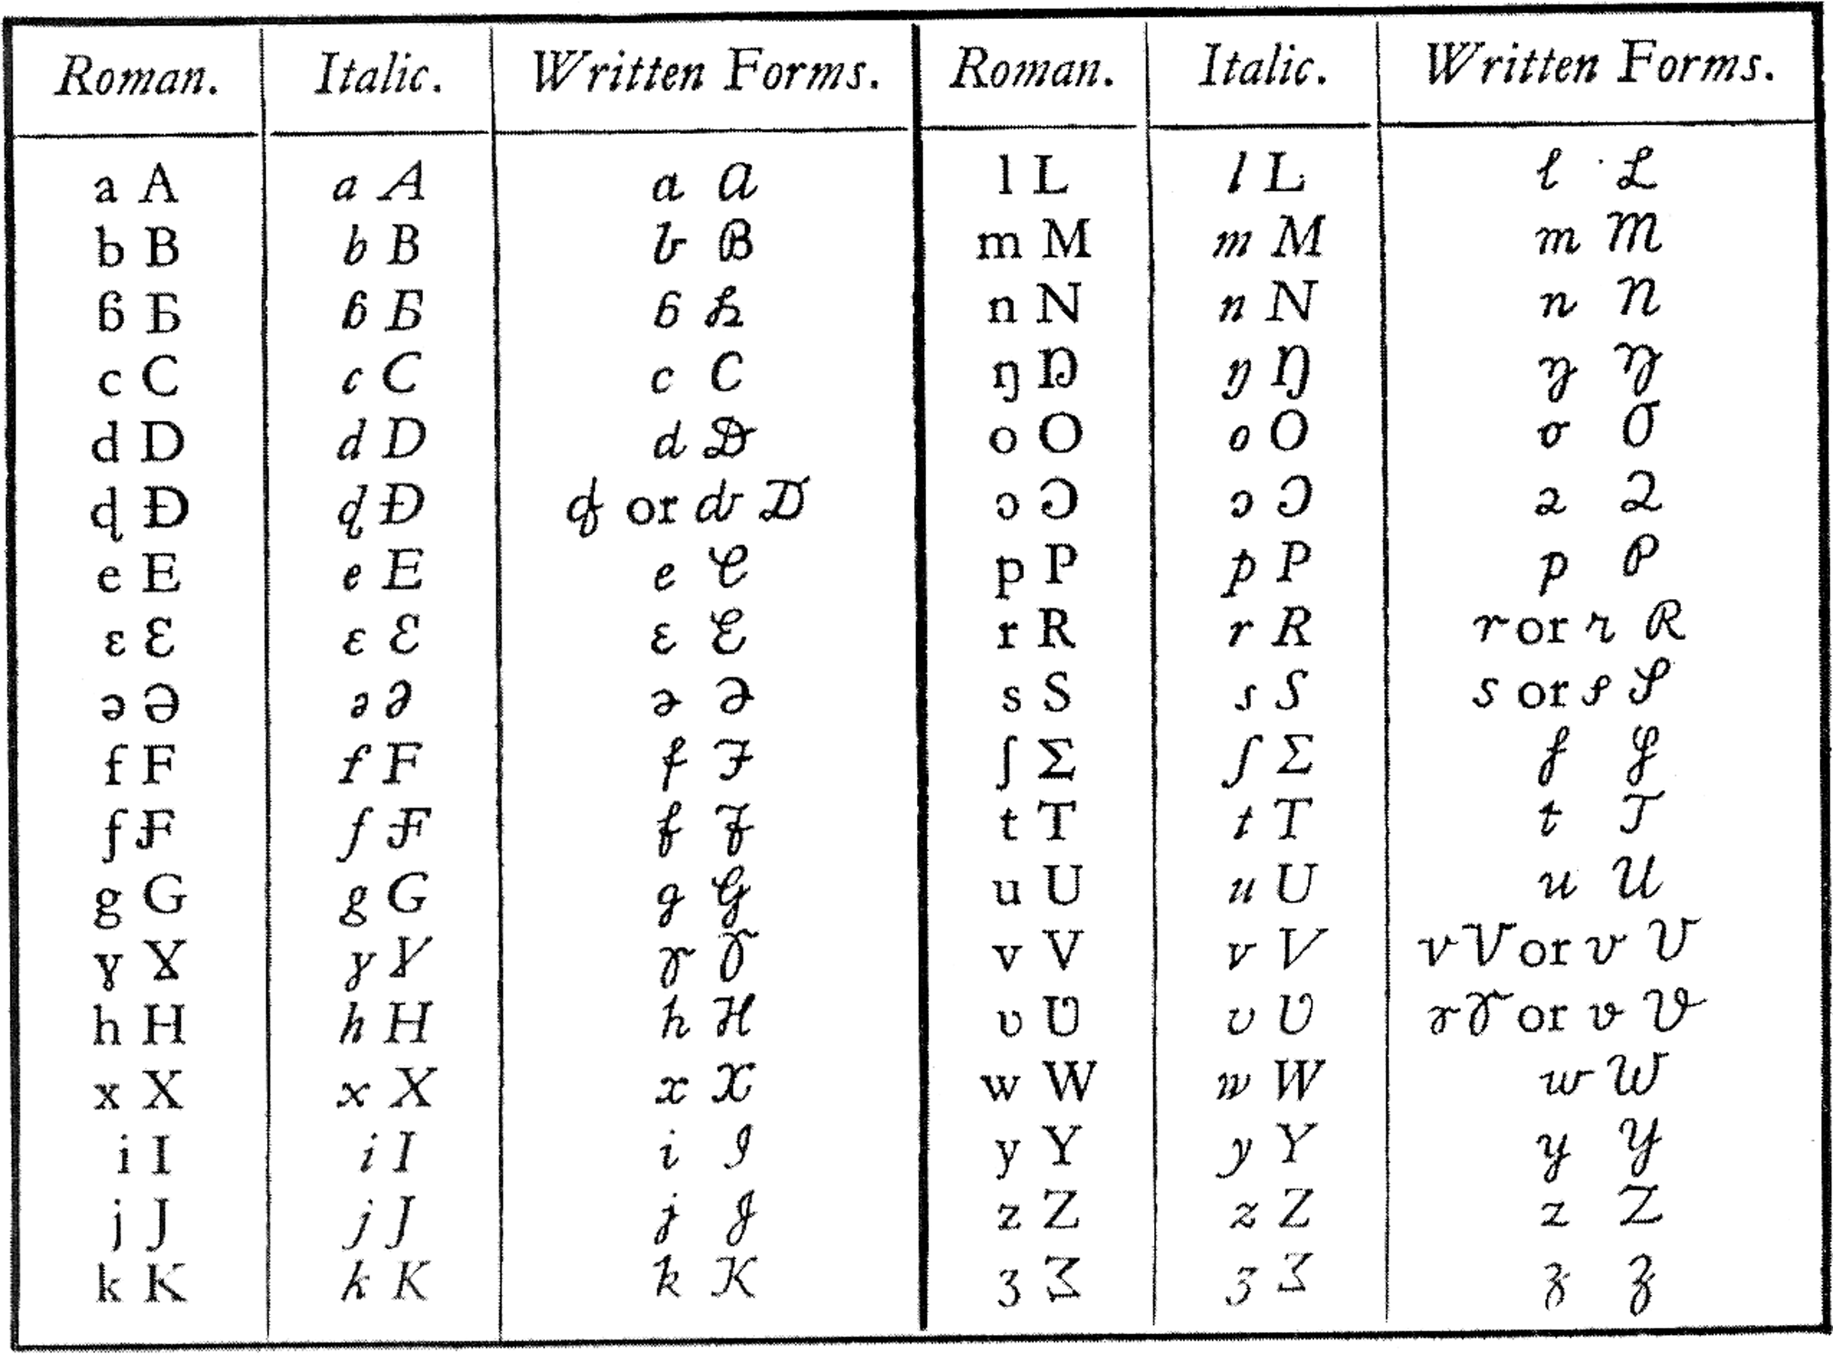 Roman. Italic. Written Forms. Roman. Italic. Written Forms.
a A a A a A l L l L l L
b B b B b B m M m M m M
ɓ Ƃ ɓ Ƃ ɓ n N n N n N
c C c C c C ŋ Ŋ ŋ Ŋ ŋ Ŋ
d D d D d D o O o O o O
ɖ Ɖ ɖ Ɖ ɖ or ɖ Ɖ ɔ Ɔ ɔ Ɔ ɔ Ɔ
e E e E e E p P p P p P
ɛ Ɛ ɛ Ɛ ɛ Ɛ r R r R r or r R
ə Ə ə Ə ə Ə s S s S s or s S
f F f F f F ʃ Σ ʃ Σ ʃ Σ
ƒ Ƒ ƒ Ƒ ƒ Ƒ t T t T t T
g G g G g G u U u U u U
ɣ Ɣ ɣ Ɣ ɣ Ɣ v V v V v V or v V
h H h H h H ʋ Ʋ ʋ Ʋ ʋ Ʋ or ʋ Ʋ
x X x X x X w W w W w W
i I i I i I y Y y Y y Y
j J j J j J z Z z Z z Z
k K k K k K ʒ Ʒ ʒ Ʒ ʒ Ʒ